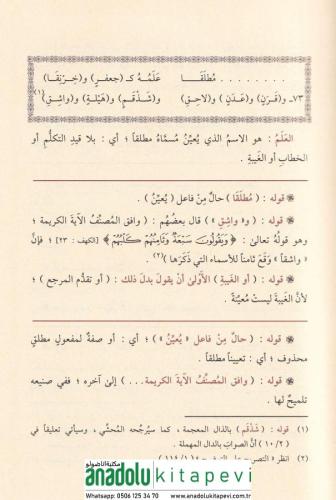 . . . . . . . . مُطْلَقَا عَلَمُهُ كـ (جعفرٍ) و(خِرْنِقَا)
٧٣ـ و(قَرَنٍ) و(عَدَنٍ) و(لاحِقِ) و(شَذْقَمٍ) و(هَيْلَةٍ) و(واشِقِ)(١)
العَلَمُ : هو الاسمُ الذي يُعيِّنُ مُسمَّاهُ مطلقاً ؛ أي : بلا قيدِ التكلُّمِ أو
الخطابِ أو الغَيبةِ .
قوله : ( مُطلَقَا ) حالٌ مِنْ فاعلِ ( يُعيِّنُ ) .
قوله : ( و« واشِقِ » ) قال بعضُهُم : ( وافق المُصنِّفُ الآيةَ الكريمة ؛
وهو قولُهُ تعالىٰ : ﴿ وَيَقُولُونَ سَبْعَةٌ وَثَامِنُهُمْ كَلْبُهُمْ ﴾ [الكهف : ٢٣] ؛ فإنَّ
« واشقاً » وَقَعَ ثامناً للأسماء التي ذَكَرَها )(٢) .
قوله : ( أو الغَيبةِ ) الأَوْلىٰ أنْ يقولَ بدلَ ذلك : ( أو تقدُّمِ المرجع ) ؛
لأنَّ الغَيبةَ ليستْ مُعيِّنةً .
قوله : ( حالٌ مِنْ فاعلِ « يُعيِّنُ » ) ؛ أي : أو صفةٌ لمفعولٍ مطلقٍ
محذوف ؛ أي : تعييناً مطلقاً .
قوله : ( وافق المُصنِّفُ الآيةَ الكريمة . . . ) إلىٰ آخره ؛ ففي صنيعه
تلميحٌ لها .
(١) قوله : ( شَذْقَمٍ ) بالذال المعجمة ، كما سيُرجِّحه المُحشِّي ، وسيأتي تعليقاً في
( ١٠/٢ ) أنَّ الصوابَ بالدال المهملة .
(٢) انظر « التصريح
مكتبة اناضولو
anadolukitapevi
Whatsapp: 0506 125 34 70 www.anadolukitapevi.com